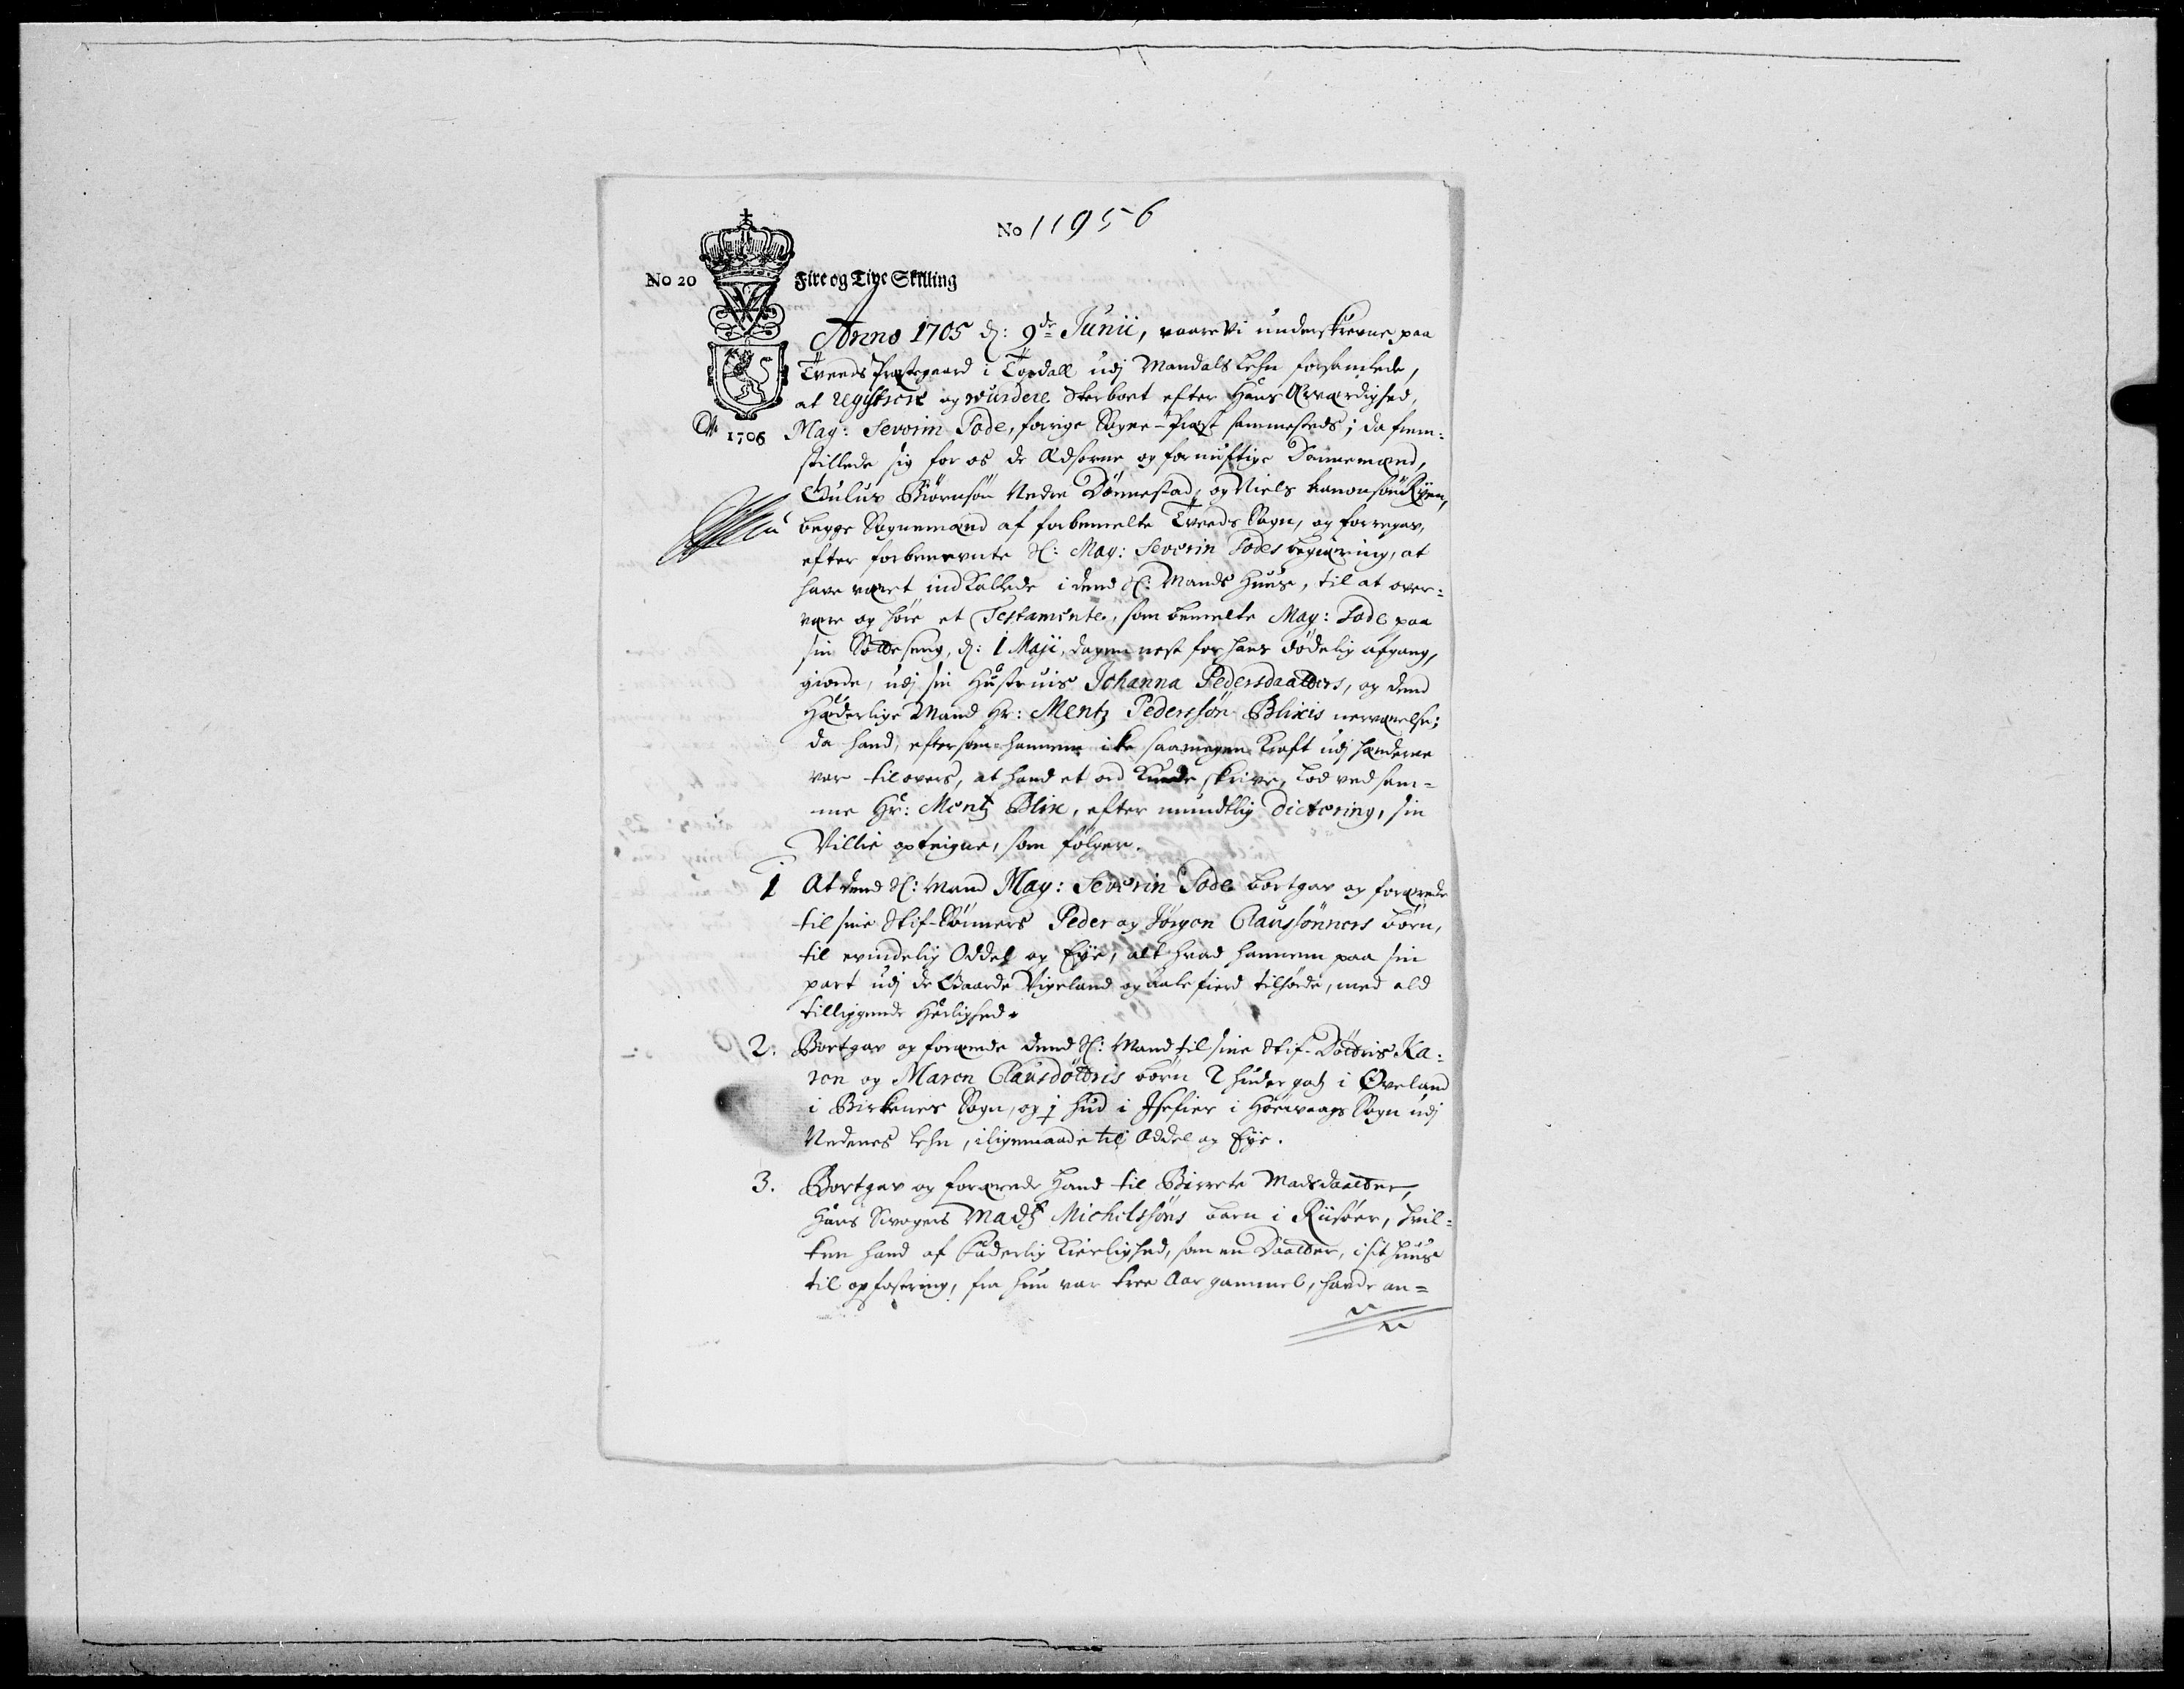 No 11956
No 20 Fire og Tiye Skilling
Anno 1705 d: 9de Junii, vaare Vi underskrevne paa
Tveeds Præstegaard i Topdall udj Mandals Lehn forsamlede,
at registrere og vurdere Sterboet efter Hans Ærværdighed,
Ao 1706 May: Severin Sode, forrige Sogne-Præst sammesteds; da frem-
stillede sig for os de Ædserne og fornuftige Dannemænd,
Gulus Biørnsøn Nedre Dønnestad, og Niels Aanonsøn Ryen,
begge Sognemænd af forbemelte Tveeds Sogn, og foregav,
efter forbenevnte Sl: May: Severin Sodes begiæring, at
have været indkallede i dend Sl: Mands Huus, til at over-
være og høre et Testamente, som bemelte May: Sode paa
sin Sotteseng, d: 1 Maji, dagen nest for hans dødelig afgang,
giorde, udj sin Hustruis Johanna Pedersdaatters, og dend
Hæderlige Mand Hr: Mentz Pedersøn Blixis nerværelse;
da hand, eftersom hannem ike saamegen Kraft udj hænderne
var tilovers, at hand et ord kunde skrive, lod ved sam-
me Hr: Mentz Blix, efter mundtlig dictering, sin
Villie opteigne, som følger.
1 At dend Sl: Mand May: Severin Sode bortgav og forærede
til sine Stif-Sønners Peder og Jørgen Claussønners børn,
til evindelig Oddel og Eye, alt hvad hannem paa sin
part udj de Gaarde Vigeland og Aalefierd tilhørde, med ald
tilliggende Herlighed.
2. Bortgav og forærede dend Sl: Mand til sine Stif-Døttris Ka-
ren og Maren Clausdøttris børn 2 huder godz i Øveland
i Birkenes Sogn, og 1 hud i Isefier i Høevaags Sogn udj
Nedenes Lehn, iligemaade til Oddel og Eye.
3. Bortgav og forærede Hand til Birrete Madsdaatter,
Hans Svogers Madtz Michelssøns barn i Riisøer, hvil-
ken hand af Faderlig Kierlighed, som en Daatter, i sit Huus
til opfostring, fra hun var tree Aar gammel, havde an-